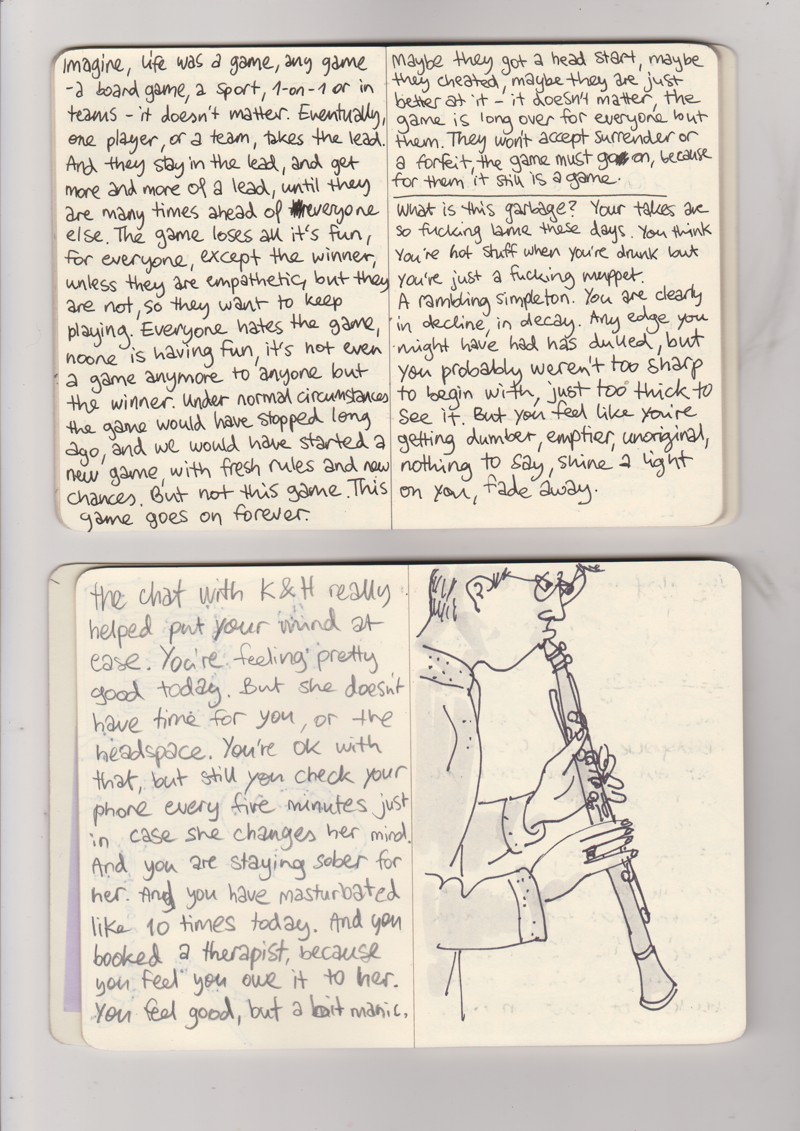 Imagine, life was a game, any game
- a board game, a sport, 1-on-1 or in
teams - it doesn't matter. Eventually,
one player, or a team, takes the lead.
And they stay in the lead, and get
more and more of a lead, until they
are many times ahead of everyone
else. The game loses all it's fun,
for everyone, except the winner,
unless they are empathetic, but they
are not, so they want to keep
playing. Everyone hates the game,
noone is having fun, it's not even
a game anymore to anyone but
the winner. Under normal circumstances
the game would have stopped long
ago, and we would have started a
new game, with fresh rules and new
chances. But not this game. This
game goes on forever.
Maybe they got a head start, maybe
they cheated, maybe they are just
better at it - it doesn't matter, the
game is long over for everyone but
them. They won't accept surrender or
a forfeit, the game must go on, because
for them it still is a game.
What is this garbage? Your takes are
so fucking lame these days. You think
you're hot stuff when you're drunk but
you're just a fucking muppet.
A rambling simpleton. You are clearly
in decline, in decay. Any edge you
might have had has dulled, but
you probably weren't too sharp
to begin with, just too thick to
see it. But you feel like you're
getting dumber, emptier, unoriginal,
nothing to say, shine a light
on you, fade away.
the chat with K&H really
helped put your mind at
ease. You're feeling pretty
good today. But she doesn't
have time for you, or the
headspace. You're ok with
that, but still you check your
phone every five minutes just
in case she changes her mind.
And you are staying sober for
her. And you have masturbated
like 10 times today. And you
booked a therapist, because
you feel you owe it to her.
You feel good, but a bit manic.